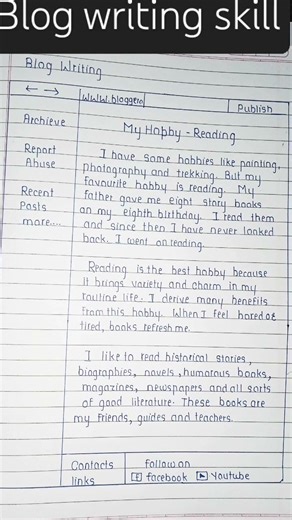 Blog writing skill
Blog Writing
← →
www.blogger
Publish
Archieve
Report
Abuse
Recent
Posts
more....
My Hobby - Reading
I have some hobbies like painting,
photography and trekking. But my
favourite hobby is reading. My
father gave me eight story books
on my eighth birthday. I read them
and since then I have never looked
back. I went on reading.
Reading is the best hobby because
it brings variety and charm in my
routine life. I derive many benefits
from this hobby. When I feel bored or
tired, books refresh me.
I like to read historical stories,
biographies, novels, humorous books,
magazines, newspapers and all sorts
of good literature. These books are
my friends, guides and teachers.
Contacts
links
follow on
f facebook ▶ Youtube